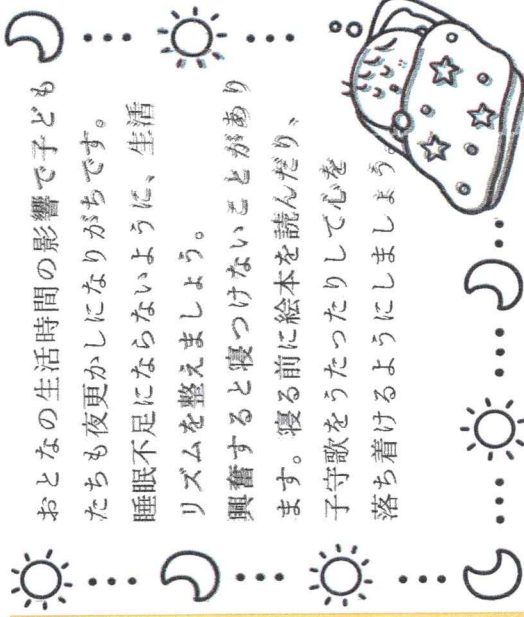 おとなの生活時間の影響で子ども
たちも夜更かしになりがちです。
睡眠不足にならないように、生活
リズムを整えましょう。
興奮すると寝つけないことがあり
ます。寝る前に絵本を読んだり、
子守歌をうたったりして心を
落ち着けるようにしましょう。